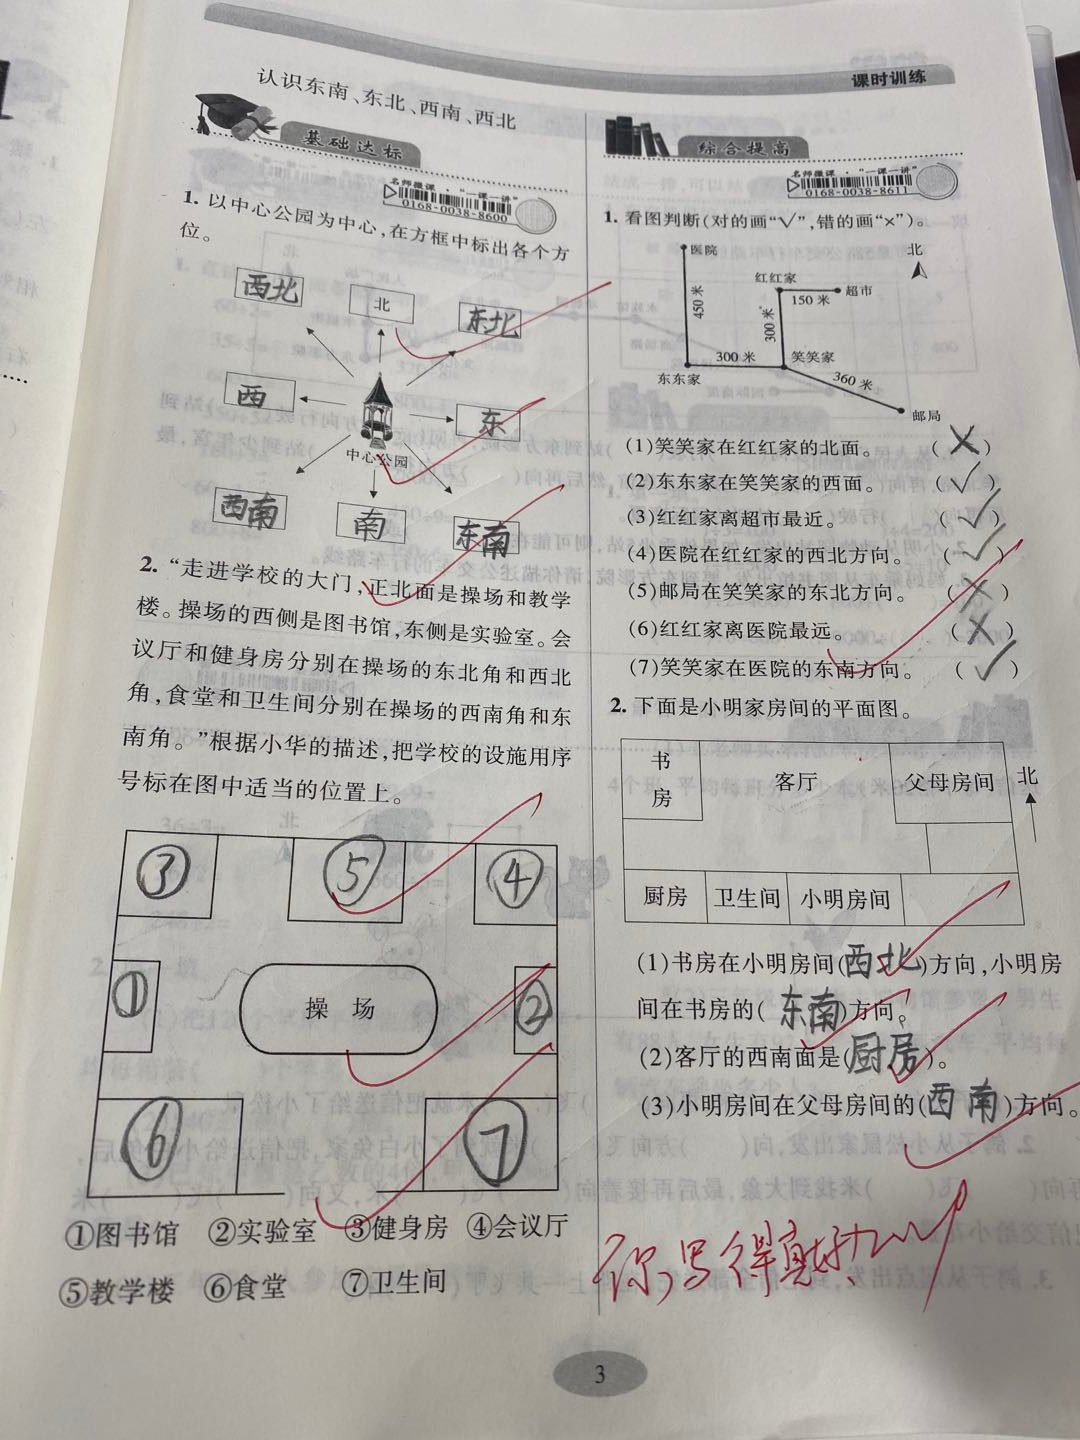 课时训练
认识东南、东北、西南、西北
基础达标
名师微课·“一课一讲”
0168-0038-8600
1. 以中心公园为中心,在方框中标出各个方
位。
西北
北
东北
西
东
中心公园
西南
南
东南
2. “走进学校的大门,正北面是操场和教学
楼。操场的西侧是图书馆,东侧是实验室。会
议厅和健身房分别在操场的东北角和西北
角,食堂和卫生间分别在操场的西南角和东
南角。”根据小华的描述,把学校的设施用序
号标在图中适当的位置上。
北
③
⑤
④
①
操 场
②
⑥
⑦
①图书馆 ②实验室 ③健身房 ④会议厅
⑤教学楼 ⑥食堂 ⑦卫生间
综合提高
名师微课·“一课一讲”
0168-0038-8611
1. 看图判断(对的画“√”,错的画“×”)。
医院
北
红红家
超市
150 米
450 米
300 米
300 米
笑笑家
东东家
360 米
邮局
(1)笑笑家在红红家的北面。 (×)
(2)东东家在笑笑家的西面。 (√)
(3)红红家离超市最近。 (√)
(4)医院在红红家的西北方向。 (√)
(5)邮局在笑笑家的东北方向。 (×)
(6)红红家离医院最远。 (×)
(7)笑笑家在医院的东南方向。 (√)
2. 下面是小明家房间的平面图。
书房
客厅
父母房间
北
厨房
卫生间
小明房间
(1)书房在小明房间(西北)方向,小明房
间在书房的(东南)方向。
(2)客厅的西南面是(厨房)。
(3)小明房间在父母房间的(西南)方向。
你写得真好
3